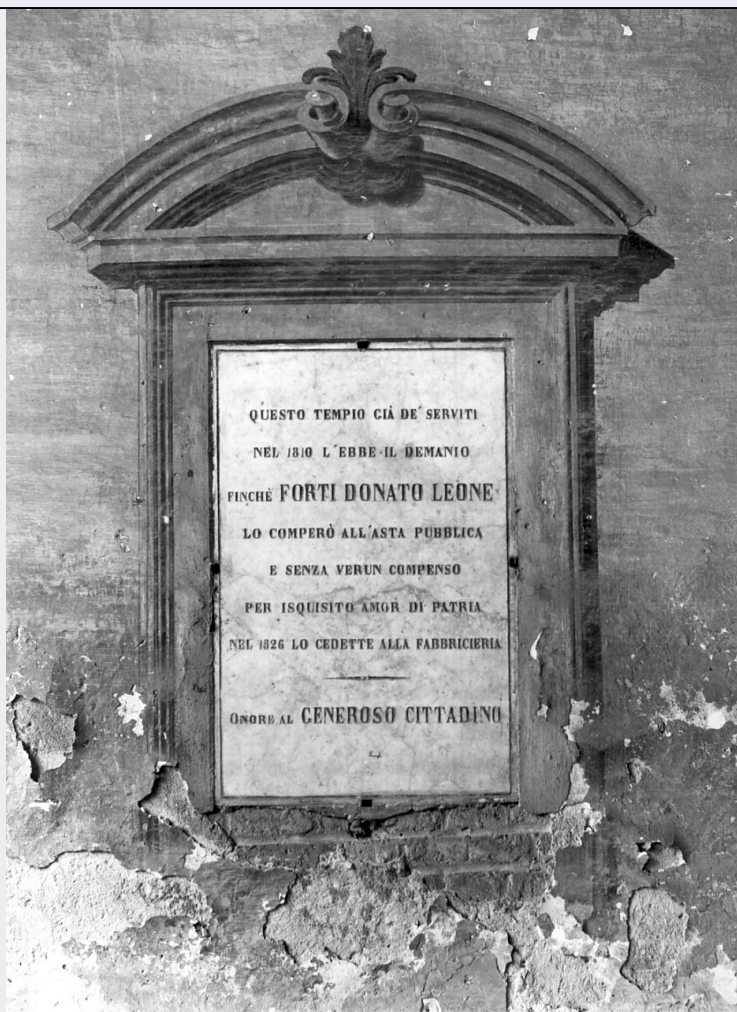 QUESTO TEMPIO GIÀ DE' SERVITI
NEL 1810 L'EBBE IL DEMANIO
FINCHÈ FORTI DONATO LEONE
LO COMPERÒ ALL'ASTA PUBBLICA
E SENZA VERUN COMPENSO
PER ISQUISITO AMOR DI PATRIA
NEL 1826 LO CEDETTE ALLA FABBRICIERIA
ONORE AL GENEROSO CITTADINO